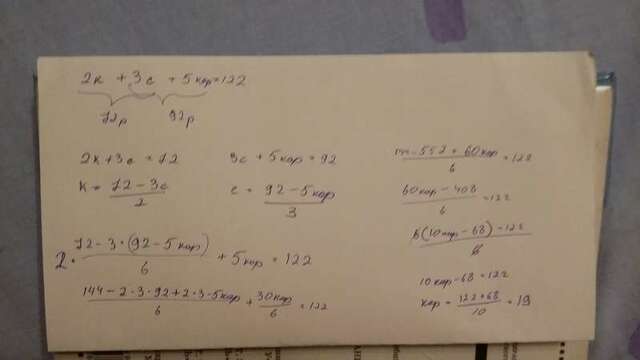 2к + 3с + 5кор = 122
72р 92р
2к + 3с = 72
к = (72 - 3с)/2
3с + 5кор = 92
с = (92 - 5кор)/3
2 · (72 - 3 · (92 - 5кор))/6 + 5кор = 122
(144 - 2 · 3 · 92 + 2 · 3 · 5кор)/6 + 30кор/6 = 122
- 552 + 60кор/6 = 122
(60кор - 408)/6 = 122
6(10кор - 68) = 122/6
10кор - 68 = 122
кор = (122 + 68)/10 = 19